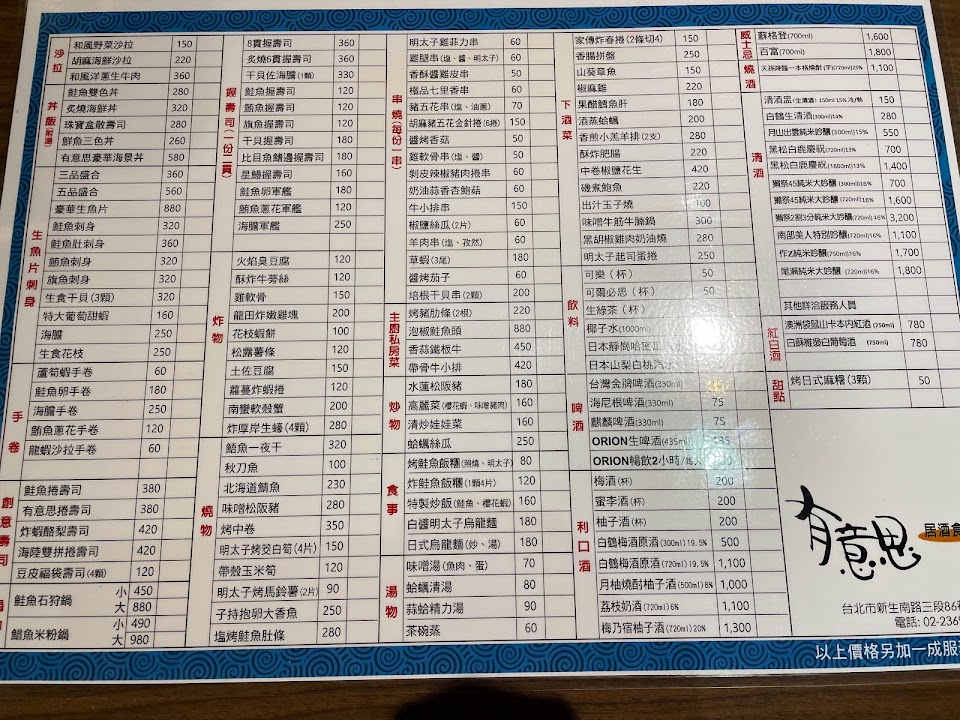 沙拉
和風野菜沙拉 150
胡麻海鮮沙拉 220
和風洋蔥生牛肉 360
丼飯(附湯)
鮭魚雙色丼 280
炙燒海鮮丼 320
珠寶盒散壽司 280
鮮魚三色丼 260
有意思豪華海景丼 580
生魚片刺身
三品盛合 360
五品盛合 560
豪華生魚片 880
鮭魚刺身 320
鮭魚肚刺身 360
鮪魚刺身 320
旗魚刺身 320
生食干貝(3顆) 320
特大葡萄甜蝦 160
海膽 250
生食花枝 250
手卷
蘆筍蝦手卷 60
鮭魚卵手卷 180
海膽手卷 250
鮪魚蔥花手卷 120
龍蝦沙拉手卷 60
創意壽司
鮭魚捲壽司 380
有意思捲壽司 380
炸蝦酪梨壽司 420
海陸雙拼捲壽司 420
豆皮福袋壽司(4顆) 120
鍋
鮭魚石狩鍋 小 450
大 880
鯛魚米粉鍋 小 490
大 980
握壽司(一份二貫)
8貫握壽司 360
炙燒6貫握壽司 360
干貝佐海膽(1顆) 330
鮭魚握壽司 180
鮪魚握壽司 180
旗魚握壽司 180
干貝握壽司 180
比目魚鰭邊握壽司 180
星鰻握壽司 160
鮭魚卵軍艦 180
鮪魚蔥花軍艦 120
海膽軍艦 250
炸物
火焰臭豆腐 120
酥炸牛蒡絲 120
雞軟骨 150
龍田炸嫩雞塊 200
花枝蝦餅 100
松露薯條 120
土佐豆腐 150
蘿蔓炸蝦捲 120
南蠻軟殼蟹 200
炸厚岸生蠔(4顆) 280
燒物
鯃魚一夜干 320
秋刀魚 100
北海道鯖魚 230
味噌松阪豬 280
烤中卷 350
明太子烤筊白筍(4片) 150
帶殼玉米筍 120
明太子烤馬鈴薯(2片) 90
子持抱卵大香魚 250
塩烤鮭魚肚條 280
串燒(每份一串)
明太子雞菲力串 60
雞腿串(塩、醬、明太子) 60
香酥醬雞皮串 50
極品七里香串 60
豬五花串(塩、油蔥) 70
胡麻豬五花金針捲(6捲) 150
醬烤香菇 50
雞軟骨串(塩、醬) 50
剝皮辣椒豬肉捲串 60
奶油蒜香杏鮑菇 60
牛小排串 150
椒鹽絲瓜(2片) 60
羊肉串(塩、孜然) 60
草蝦(3尾) 180
醬烤茄子 60
培根干貝串(2顆) 200
主廚私房菜
烤豬肋條(2根) 220
泡椒鮭魚頭 880
香蒜鐵板牛 450
帶骨牛小排 420
炒物
水蓮松阪豬 180
高麗菜(櫻花蝦、味噌豬肉) 160
清炒娃娃菜 160
蛤蠣絲瓜 250
食事
烤鮭魚飯糰(照燒、明太子) 80
炸鮭魚飯糰(1顆4片) 120
特製炒飯(鮭魚、櫻花蝦) 160
白醬明太子烏龍麵 180
日式烏龍麵(炒、湯) 180
湯物
味噌湯(魚肉、蛋) 70
蛤蠣清湯 80
蒜蛤精力湯 90
茶碗蒸 60
下酒菜
家傳炸春捲(2條切4) 150
香腸拼盤 250
山葵章魚 150
椒麻雞 220
果醋鱈魚肝 180
酒蒸蛤蠣 200
香煎小羔羊排(2支) 280
酥炸肥腸 220
中卷椒鹽花生 420
磯煮鮑魚 220
出汁玉子燒 100
味噌牛筋牛腩鍋 300
黑胡椒雞肉奶油燒 280
明太子起司蛋捲 250
飲料
可樂(杯) 50
可爾必思(杯) 50
生綠茶(杯)
椰子水(1000ml)
日本醇尚哈密瓜
日本山梨白桃汽水
啤酒
台灣金牌啤酒(330ml)
海尼根啤酒(330ml) 75
麒麟啤酒(330ml) 75
ORION生啤酒(435ml)
ORION暢飲2小時
利口酒
梅酒(杯) 200
蜜李酒(杯) 200
柚子酒(杯) 200
白鶴梅酒原酒(300ml)19.5% 500
白鶴梅酒原酒(720ml)19.5% 1,100
月桂燒酎柚子酒(500ml)8% 1,000
荔枝奶酒(720ml)6% 1,100
梅乃宿柚子酒(720ml)20% 1,300
威士忌
蘇格登(700ml) 1,600
百富(700ml) 1,800
燒酒
天孫降臨一本格燒酎(芋)(720ml)25% 1,100
清酒
清酒盅(生清酒)150ml 15% 冷/熱 150
白鶴生清酒(300ml)14% 280
月山出雲純米吟釀(300ml)15% 550
黑松白鹿慶祝(720ml)13% 700
黑松白鹿慶祝(1600ml)13% 1,400
獺祭45純米大吟釀(300ml)16% 700
獺祭45純米大吟釀(720ml)16% 1,600
獺祭2割3分純米大吟釀(720ml)16% 3,200
南部美人特別吟釀(720ml)16% 1,100
作Z純米吟釀(750ml)16% 1,700
尾瀨純米大吟釀(720ml)16% 1,800
其他詳洽服務人員
紅白酒
澳洲袋鼠山卡本內紅酒(750ml) 780
白酥維翁白葡萄酒(750ml) 780
甜點
烤日式麻糬(3顆) 50
有意思
居酒食
台北市新生南路三段86
電話: 02-236
以上價格另加一成服